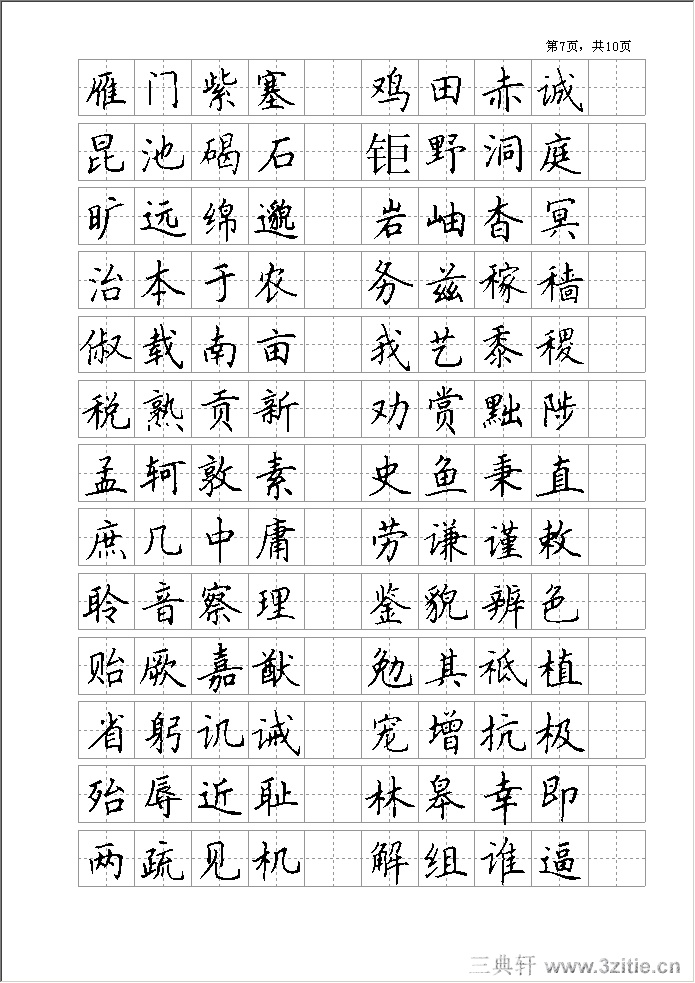 第7页，共10页
雁门紫塞 鸡田赤诚
昆池碣石 钜野洞庭
旷远绵邈 岩岫杳冥
治本于农 务兹稼穑
俶载南亩 我艺黍稷
税熟贡新 劝赏黜陟
孟轲敦素 史鱼秉直
庶几中庸 劳谦谨敕
聆音察理 鉴貌辨色
贻厥嘉猷 勉其祗植
省躬讥诫 宠增抗极
殆辱近耻 林皋幸即
两疏见机 解组谁逼
三典轩 www.3zitie.cn